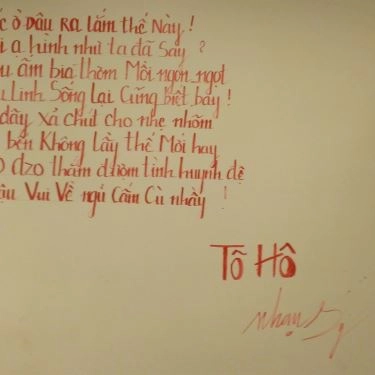 ở Dâu RA lắm thế Này !
ạ hình như ta đã Say ?
ẩm bia thơm Mồi ngon ngọt
Linh Sống lại Cũng biệt bây !
đây xả chút cho nhẹ nhõm
bên Không lầy thế Mới hay
dzo thắm đượm tình huynh đệ
Vui Vẻ ngủ Cắm Cù nhầy !
TÔ HÔ